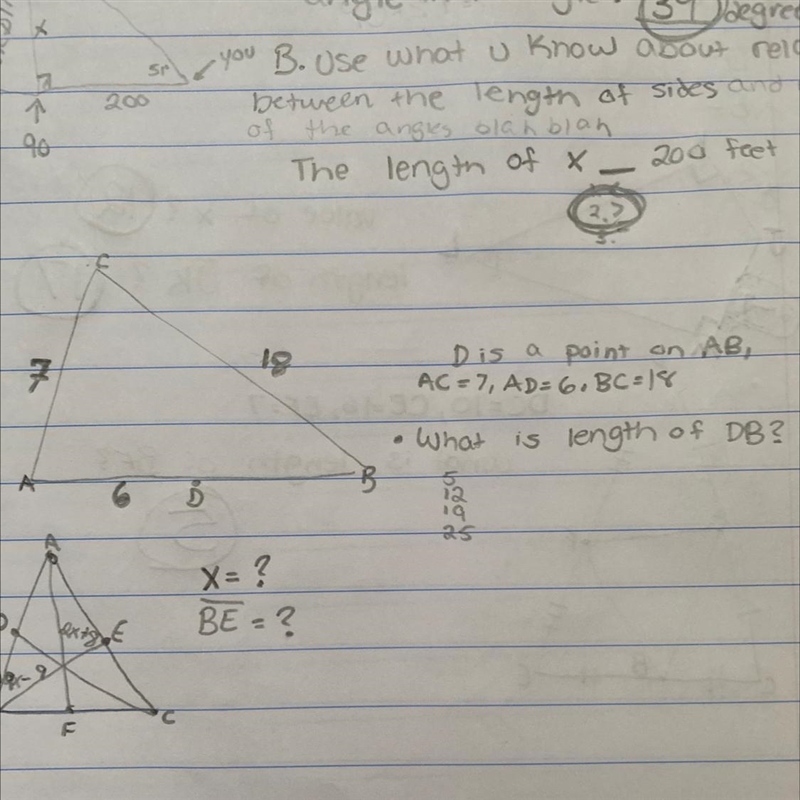 angle in
39 degree
x
sr
you
B. Use what u know about rela
200
between the length of sides and
90
of the angles blah blah
The length of x _ 200 feet
C
7
18
D is a point on AB,
AC=7, AD=6, BC=18
• What is length of DB?
A
6
D
B
5
12
19
25
A
x = ?
BE = ?
2x+8
E
F
C